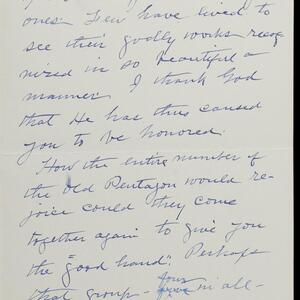 ones. Few have lived to
see their godly works recog
nized in so beautiful a
manner. I thank God
that He has thus caused
you to be honored.
How the entire number of
the Old Pentagon would re-
joice could they come
together again to give you
the "good hand". Perhaps
that group - four in all-